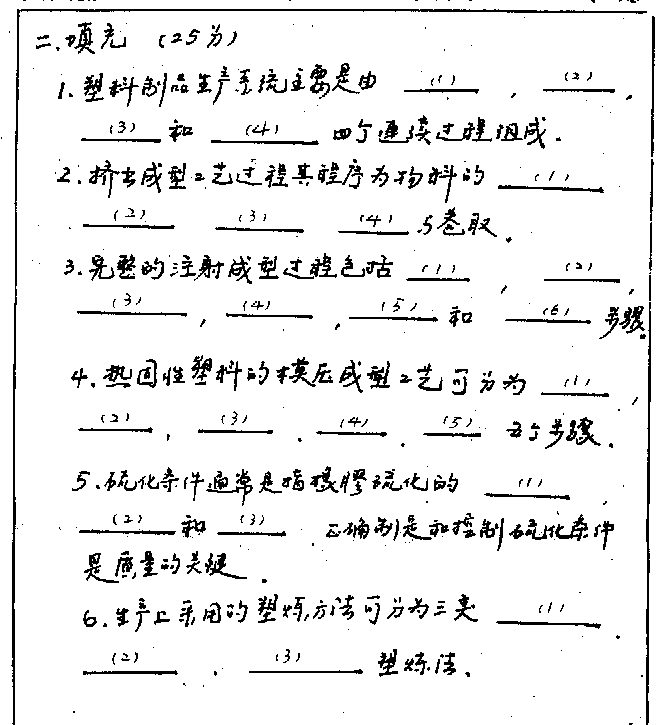 二、填充 (25分)
1. 塑料制品生产系统主要是由 (1) , (2) ,
(3) 和 (4) 四个连续过程组成.
2. 挤出成型工艺过程其程序为物料的 (1)
(2) (3) (4) 与卷取.
3. 完整的注射成型过程包括 (1) , (2) ,
(3) , (4) , (5) 和 (6) 步骤.
4. 热固性塑料的模压成型工艺可分为 (1) ,
(2) , (3) . (4) . (5) 五个步骤.
5. 硫化条件通常是指橡膠硫化的 (1) ,
(2) 和 (3) . 正确制定和控制硫化条件
是质量的关键.
6. 生产上采用的塑炼方法可分为三类 (1) .
(2) . (3) 塑炼法.